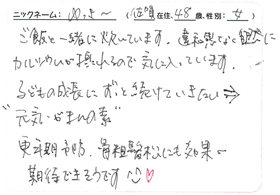 ニックネーム：のん5〜（佐賀在住、48歳、性別：女）
ご飯と一緒に炊いています。違和感なく自然に
カルシウムが摂れるので気に入っています。
子どもの成長にずっと続けていきたい⇒
"元気いがまんの素"
更年期予防、骨粗鬆松にも効果〜
期待できそうです♡